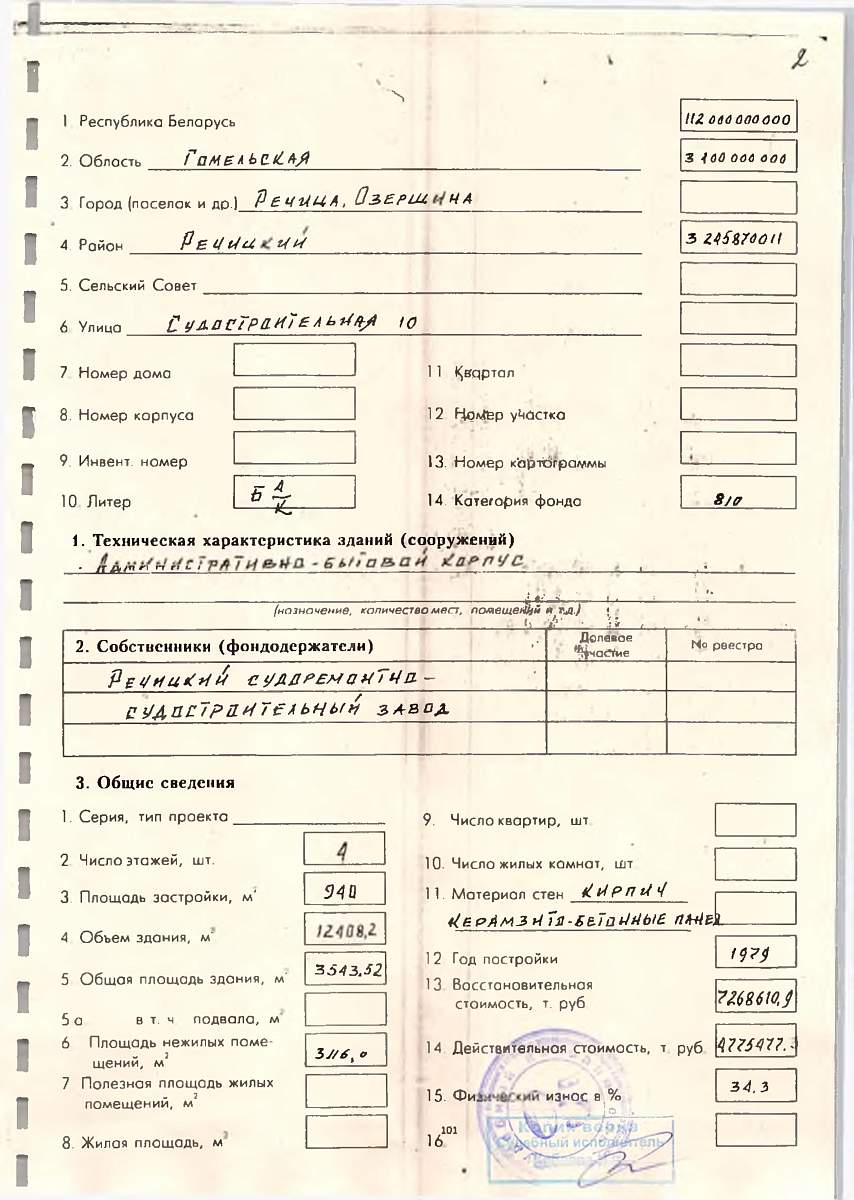 2
1 Республика Беларусь 112 000 000 000
2. Область Гомельская 3 100 000 000
3 Город (поселок и др.) Речица, Озерщина
4. Район Речицкий 3 245870011
5. Сельский Совет
6 Улица Судостроительная 10
7 Номер дома 11 Квартал
8. Номер корпуса 12 Номер участка
9. Инвент. номер 13. Номер картограммы
10. Литер Б А/К 14. Категория фонда 810
1. Техническая характеристика зданий (сооружений)
Административно-бытовой корпус
(назначение, количество мест, помещений и т.д.)
2. Собственники (фондодержатели) Долевое участие № реестра
Речицкий судоремонтно-
судостроительный завод
3. Общие сведения
1. Серия, тип проекта 9. Число квартир, шт.
2 Число этажей, шт. 4 10. Число жилых комнат, шт
3. Площадь застройки, м² 940 11. Материал стен кирпич
4. Объем здания, м³ 12408,2 керамзито-бетонные панел
5 Общая площадь здания, м² 3543.52 12 Год постройки 1979
5а в т. ч подвала, м² 13. Восстановительная стоимость, т. руб 7268610,9
6 Площадь нежилых помещений, м² 3116,0 14. Действительная стоимость, т. руб. 4775477.3
7 Полезная площадь жилых помещений, м² 15. Физический износ в % 34.3
8. Жилая площадь, м² 16 101
Копия верна
Судебный исполнитель